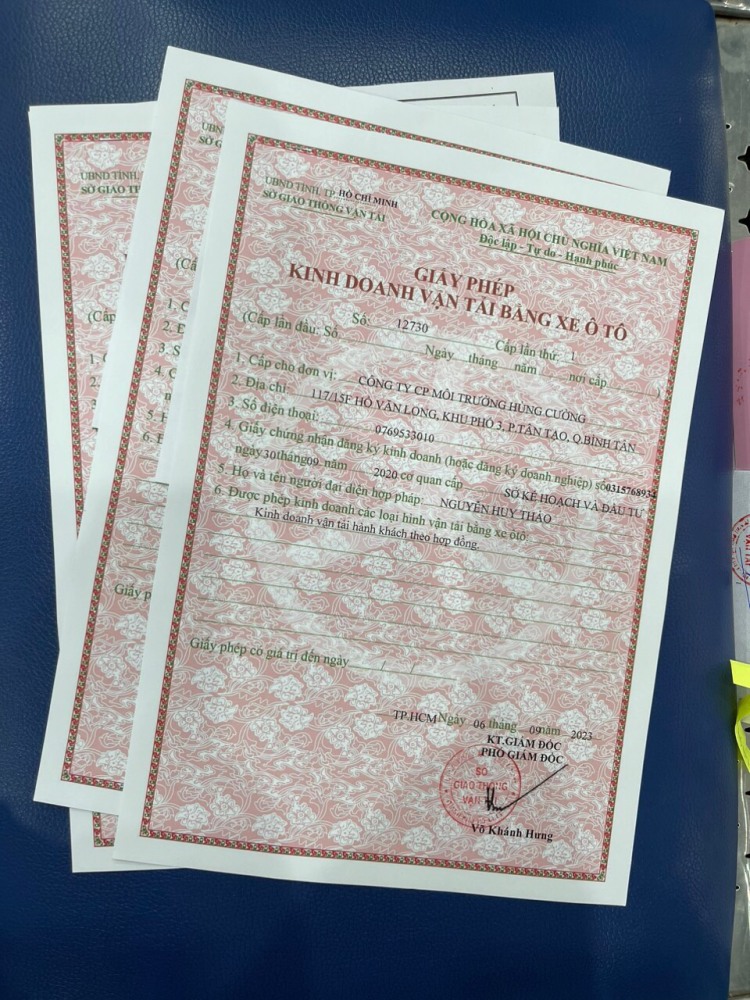 UBND TỈNH, TP HỒ CHÍ MINH
SỞ GIAO THÔNG VẬN TẢI
CỘNG HÒA XÃ HỘI CHỦ NGHĨA VIỆT NAM
Độc lập - Tự do - Hạnh phúc
GIẤY PHÉP
KINH DOANH VẬN TẢI BẰNG XE Ô TÔ
Số: 12730 Cấp lần thứ: 1
(Cấp lần đầu: Số Ngày tháng năm nơi cấp )
1. Cấp cho đơn vị: CÔNG TY CP MÔI TRƯỜNG HÙNG CƯỜNG
2. Địa chỉ: 117/15F HỒ VĂN LONG, KHU PHỐ 3, P.TÂN TẠO, Q.BÌNH TÂN
3. Số điện thoại: 0769533010
4. Giấy chứng nhận đăng ký kinh doanh (hoặc đăng ký doanh nghiệp) số 0315768934
ngày 30 tháng 09 năm 2020 cơ quan cấp SỞ KẾ HOẠCH VÀ ĐẦU TƯ
5. Họ và tên người đại diện hợp pháp: NGUYỄN HUY THẢO
6. Được phép kinh doanh các loại hình vận tải bằng xe ôtô:
Kinh doanh vận tải hành khách theo hợp đồng.
Giấy phép có giá trị đến ngày / /
TP.HCM Ngày 06 tháng 09 năm 2023
KT.GIÁM ĐỐC
PHÓ GIÁM ĐỐC
SỞ
GIAO THÔNG
VẬN
Võ Khánh Hưng
UBN
SỞ G
(Cấ
1. C
2. Đ
3. S
4. C
5. H
6. Đ
Giấy p
UBND TỈNH,
SỞ GIAO TH
(Cấp
1.
2.